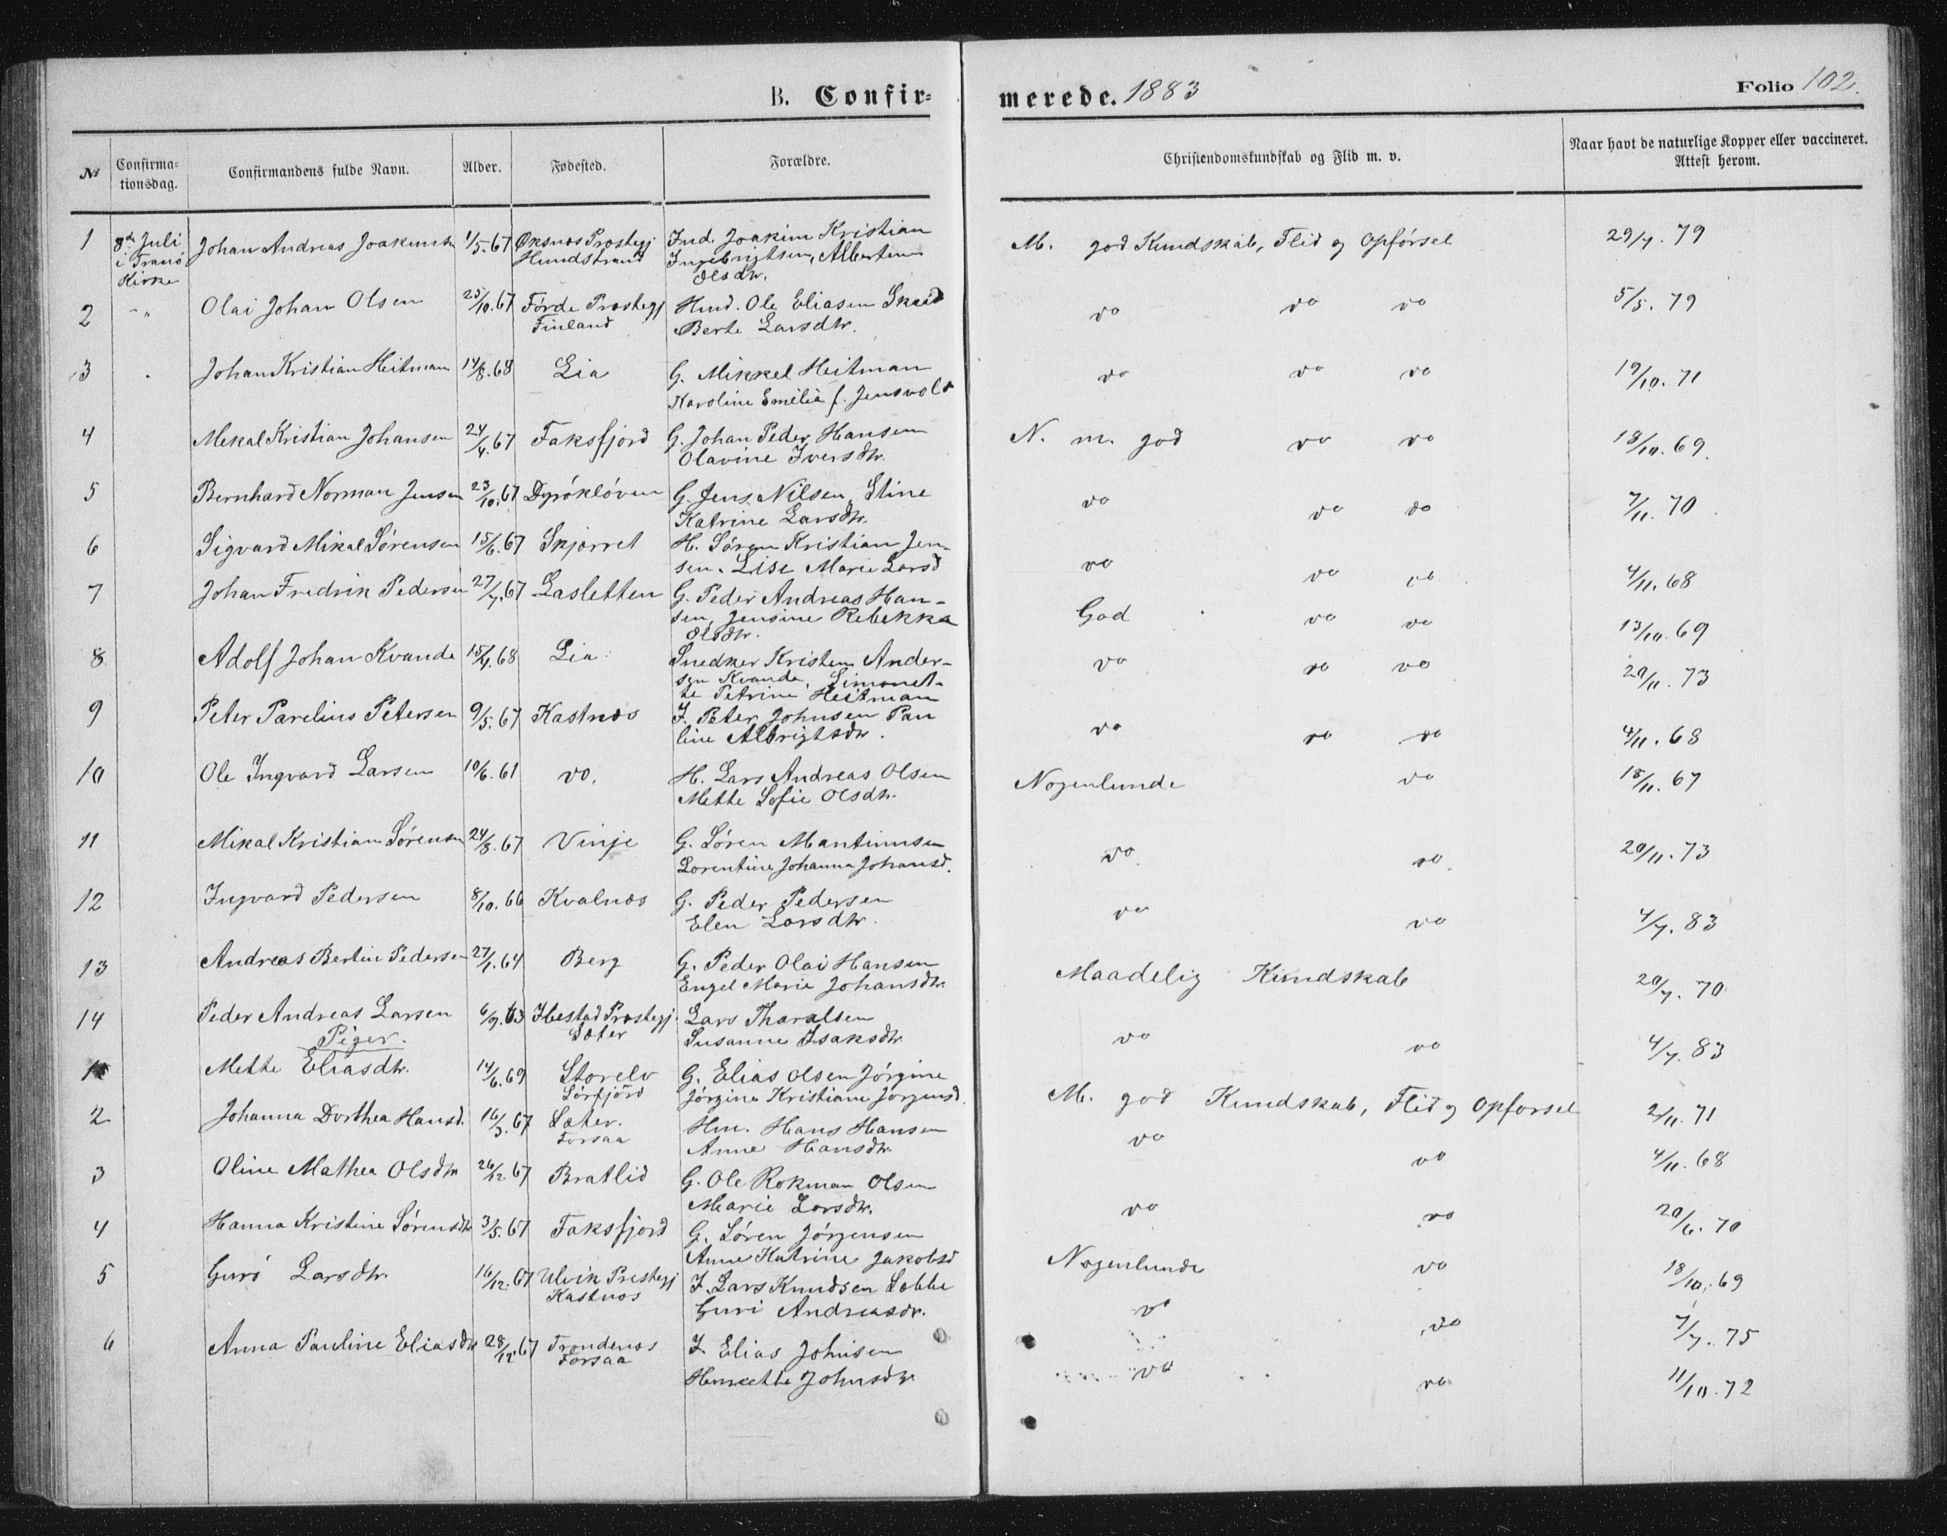 B. Confir= merede. 1883 Folio 102.
№ Confirma-tionsdag. Confirmandens fulde Navn. Alder. Fødested. Forældre. Christendomskundskab og Flid m. v. Naar havt de naturlige Kopper eller vaccineret. Attest herom.
1 8de Juli Johan Andreas Joakimsen 1/5.67 Øksnæs Prestegj. Ind. Joakim Kristian M. god Kundskab, Flid og Opførsel 29/7.79
i Tranø Hundstrand Ingebrigtsen, Albertine
Kirke Olsdtr.
2 - „ Olai Johan Olsen 25/10.67 Førde Prestegj Hmd. Ole Eliasen do do do 5/5.79
Finland Berte Larsdtr.
3 Johan Kristian Heitman 14/8.68 Lia G. Mikkel Heitman do do do 19/10.71
Karoline Emelie f. Jensvold
4 Mekal Kristian Johansen 24/4.67 Faksfjord G. Johan Peder Hansen N. m. god do do 18/10.69.
Olavine Iversdtr.
5 Bernhard Norman Jensen 23/10.67 Dyrökløven G. Jens Nilsen, Stine do do do 7/11.70
Katrine Larsdtr.
6 Sigvard Mikal Sørensen 15/6.67 Skjørret H. Søren Kristian Jen- do do do 4/11.68
sen. Lise Marie Larsd
7 Johan Fredrik Pedersen 27/7.67 Lasletten G. Peder Andreas Han- God do do 13/10.69
sen, Jensine Rebekka
Olsdtr.
8 Adolf Johan Kvande 15/4.68 Lia Snedker Kristen Ander- do do do 20/11.73
sen Kvande, Simonet-
te Petrine Heitman
9 Peter Parelius Petersen 9/5.67 Kastnæs I. Peter Johnsen Pau do do do 4/11.68
line Albrigtsdtr.
10 Ole Ingvard Larsen 10/6.61 do. H. Lars Andreas Olsen Nogenlunde do 18/11.67
Mette Sofie Olsdtr.
11 Mikal Kristian Sørensen 24/8.67 Vinje G. Søren Martinusen do do 20/11.73
Lorentine Johanna Johansd.
12 Ingvard Pedersen 8/10.66 Kvalnæs G. Peder Pedersen do do 4/7.83
Elen Larsdtr.
13 Andreas Bertin Pedersen 27/1.64 Berg G. Peder Olai Hansen Maadelig Kundskab 20/7.70
Engel Marie Johansdtr.
14 Peder Andreas Larsen 6/9.63 Ibestad Prestegj. Lars Tharalsen do do 4/7.83
Piger. Sæter Susanne Isaksdtr
1 Mette Eliasdtr. 14/6.69 Storelv G. Elias Olsen Jørgine M. god Kundskab, Flid og Opførsel 2/11.71
Sørfjord Jørgine Kristiane Jørgensd.
2 Johanna Dorthea Hansd. 16/3.67 Sæter. Hm. Hans Hansen do do 4/11.68
Forsaa Anne Hansdtr.
3 Oline Mathea Olsdtr 26/12.67 Bratlid G. Ole Rokman Olsen do do 20/6.70
Marie Larsdtr.
4 Hanna Kristine Sørensdtr 3/5.67 Faksfjord G. Søren Jørgensen Nogenlunde do 18/10.69
Anne Katrine Jakobsd
5 Guro Larsdtr. 16/12.67 Ulvik Prestegj I. Lars Knudsen Løbbe do do 7/7.75
Kastnæs Guri Andreasdtr.
6 Anna Pauline Eliasdtr 28/12.67 Trondenæs I Elias Johnsen do do 11/10.72
Forsaa Henrette Johnsdtr